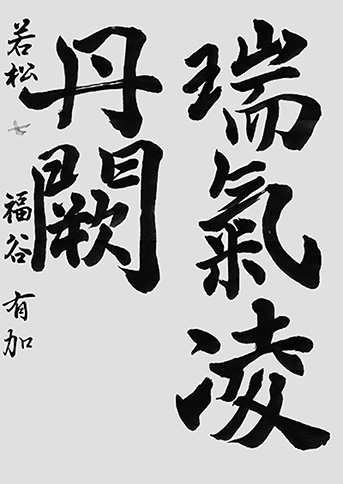 瑞氣凌
丹闕
若松 七 福谷 有加